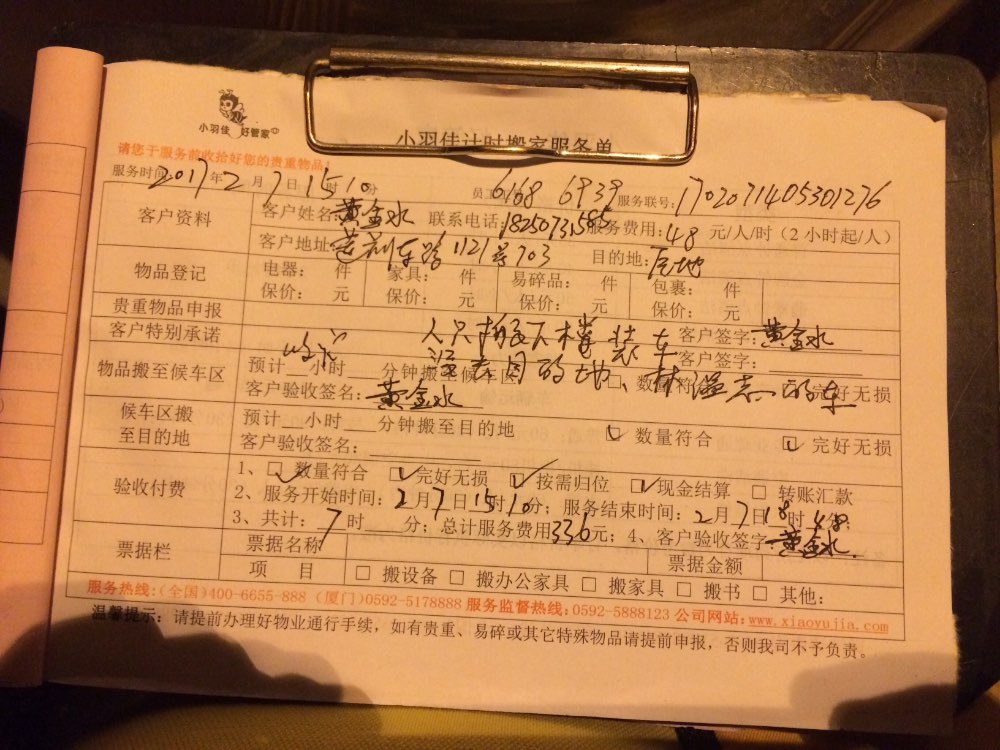 小羽佳 好管家
小羽佳计时搬家服务单
请您于服务前收拾好您的贵重物品!
服务时间 2017年2月7日15时10分 员工 6168 6939 服务联号: 1702071405301276
客户资料
客户姓名 黄金水 联系电话: 18250731585 服务费用: 48 元/人/时（2小时起/人）
客户地址 1121号703 目的地:
物品登记
电器: 件 家具: 件 易碎品: 件 包裹: 件
保价: 元 保价: 元 保价: 元 保价: 元
贵重物品申报
客户签字: 黄金水
客户特别承诺
人只搬下楼装车
客户签字:
物品搬至候车区
预计 小时 分钟搬至候车区 □ 数量符 完好无损
目的地、 的车
客户验收签名: 黄金水
候车区搬
至目的地
预计 小时 分钟搬至目的地 ☑ 数量符合 ☑ 完好无损
客户验收签名:
验收付费
1、☑ 数量符合 ☑ 完好无损 ☑ 按需归位 ☑ 现金结算 □ 转账汇款
2、服务开始时间: 2月7日15时10分；服务结束时间: 2月7日18时48分;
3、共计: 7时 分；总计服务费用336元；4、客户验收签字 黄金水
票据栏
票据名称 票据金额
项 目 □ 搬设备 □ 搬办公家具 □ 搬家具 □ 搬书 □ 其他:
服务热线:(全国)400-6655-888 (厦门)0592-5178888 服务监督热线:0592-5888123 公司网站:www.xiaoyujia.com
温馨提示: 请提前办理好物业通行手续，如有贵重、易碎或其它特殊物品请提前申报，否则我司不予负责。